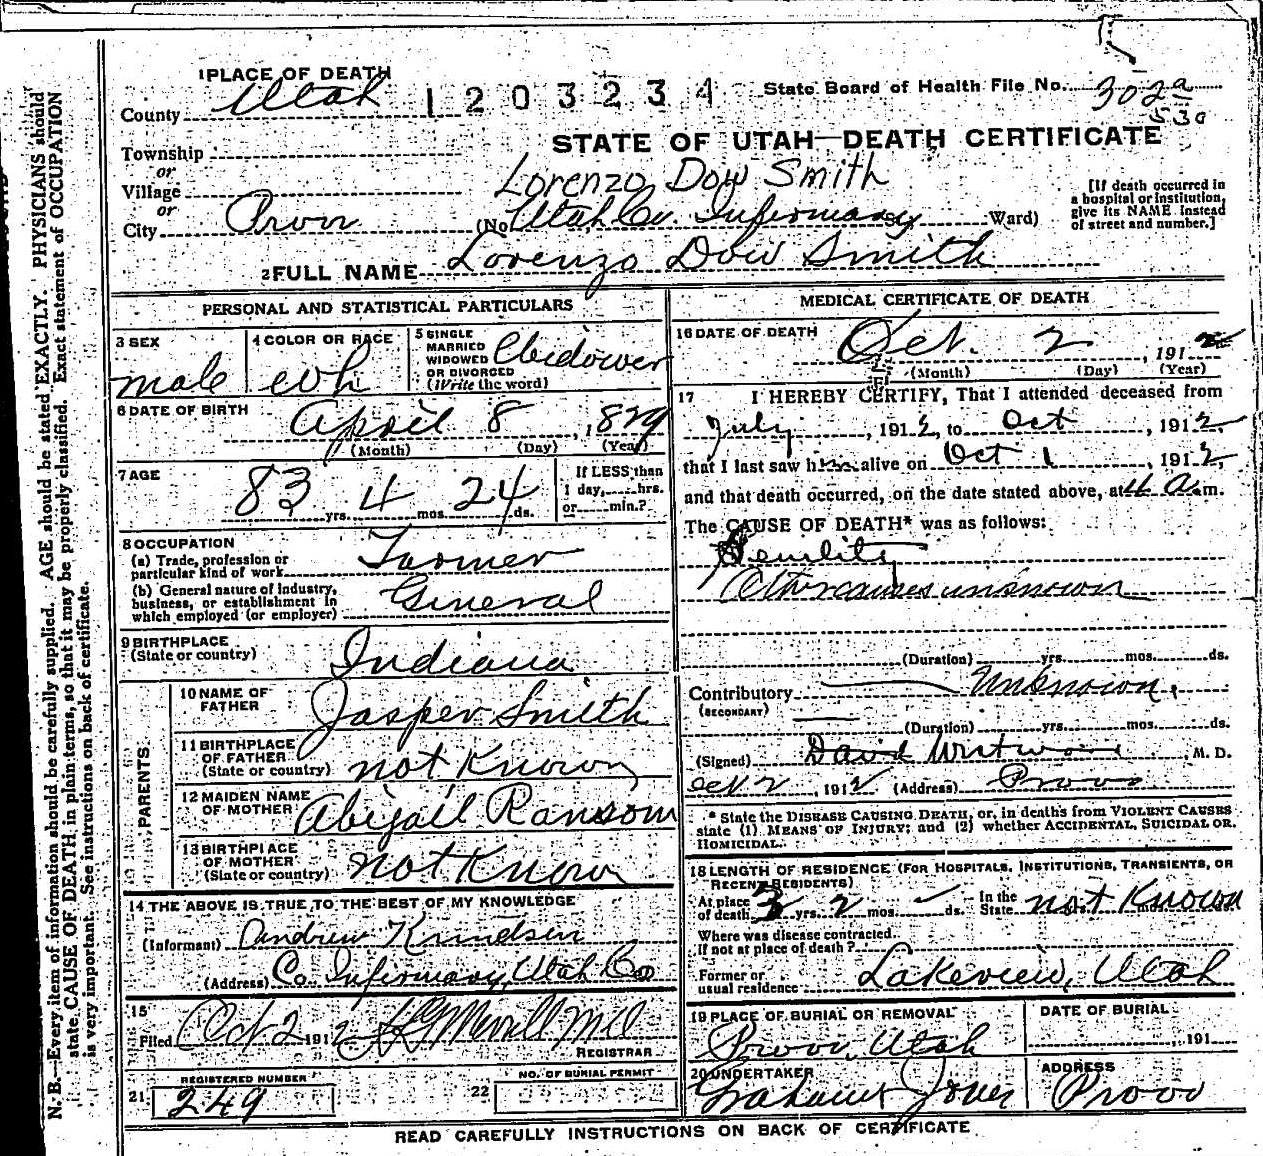 1 PLACE OF DEATH
County Utah 1203234 State Board of Health File No. 302a
53a
STATE OF UTAH—DEATH CERTIFICATE
Township
or
Village
or
City Provo
Lorenzo Dow Smith
(No Utah Co. Infirmary Ward)
[If death occurred in a hospital or institution, give its NAME instead of street and number.]
2 FULL NAME Lorenzo Dow Smith
PERSONAL AND STATISTICAL PARTICULARS
3 SEX
male
4 COLOR OR RACE
wh
5 SINGLE
MARRIED
WIDOWED
OR DIVORCED
(Write the word)
Widower
6 DATE OF BIRTH
April 8, 1829
(Month) (Day) (Year)
7 AGE
83 yrs. 4 mos. 24 ds.
If LESS than
1 day, hrs.
or min.?
8 OCCUPATION
(a) Trade, profession or
particular kind of work Farmer
(b) General nature of industry,
business, or establishment in
which employed (or employer) General
9 BIRTHPLACE
(State or country) Indiana
PARENTS
10 NAME OF
FATHER Jasper Smith
11 BIRTHPLACE
OF FATHER
(State or country) not Known
12 MAIDEN NAME
OF MOTHER Abigail Ransom
13 BIRTHPLACE
OF MOTHER
(State or country) not Known
14 THE ABOVE IS TRUE TO THE BEST OF MY KNOWLEDGE
(Informant) Andrew Knudsen
(Address) Co. Infirmary, Utah Co
15
Filed Oct 2 1912 Merrill
REGISTRAR
REGISTERED NUMBER
21 249
NO. OF BURIAL PERMIT
22
MEDICAL CERTIFICATE OF DEATH
16 DATE OF DEATH
Oct. 2, 1912
(Month) (Day) (Year)
17 I HEREBY CERTIFY, That I attended deceased from
July, 1912, to Oct, 1912,
that I last saw him alive on Oct 1, 1912,
and that death occurred, on the date stated above, at 4 a.m.
The CAUSE OF DEATH* was as follows:
Senility
Other causes unknown
(Duration) yrs. mos. ds.
Contributory Unknown.
(SECONDARY)
(Duration) yrs. mos. ds.
(Signed) David Westwood, M. D.
Oct 2, 1912 (Address) Provo
* State the DISEASE CAUSING DEATH, or, in deaths from VIOLENT CAUSES
state (1) MEANS OF INJURY; and (2) whether ACCIDENTAL, SUICIDAL OR
HOMICIDAL.
18 LENGTH OF RESIDENCE (FOR HOSPITALS, INSTITUTIONS, TRANSIENTS, OR
RECENT RESIDENTS)
At place
of death 3 yrs. 2 mos. ds. In the
State not Known
Where was disease contracted
If not at place of death?
Former or
usual residence Lakeview, Utah
19 PLACE OF BURIAL OR REMOVAL
Provo, Utah
DATE OF BURIAL
191
20 UNDERTAKER
Jones
ADDRESS
Provo
READ CAREFULLY INSTRUCTIONS ON BACK OF CERTIFICATE
N. B.—Every item of information should be carefully supplied. AGE should be stated EXACTLY. PHYSICIANS should
state CAUSE OF DEATH in plain terms, so that it may be properly classified. Exact statement of OCCUPATION
is very important. See instructions on back of certificate.